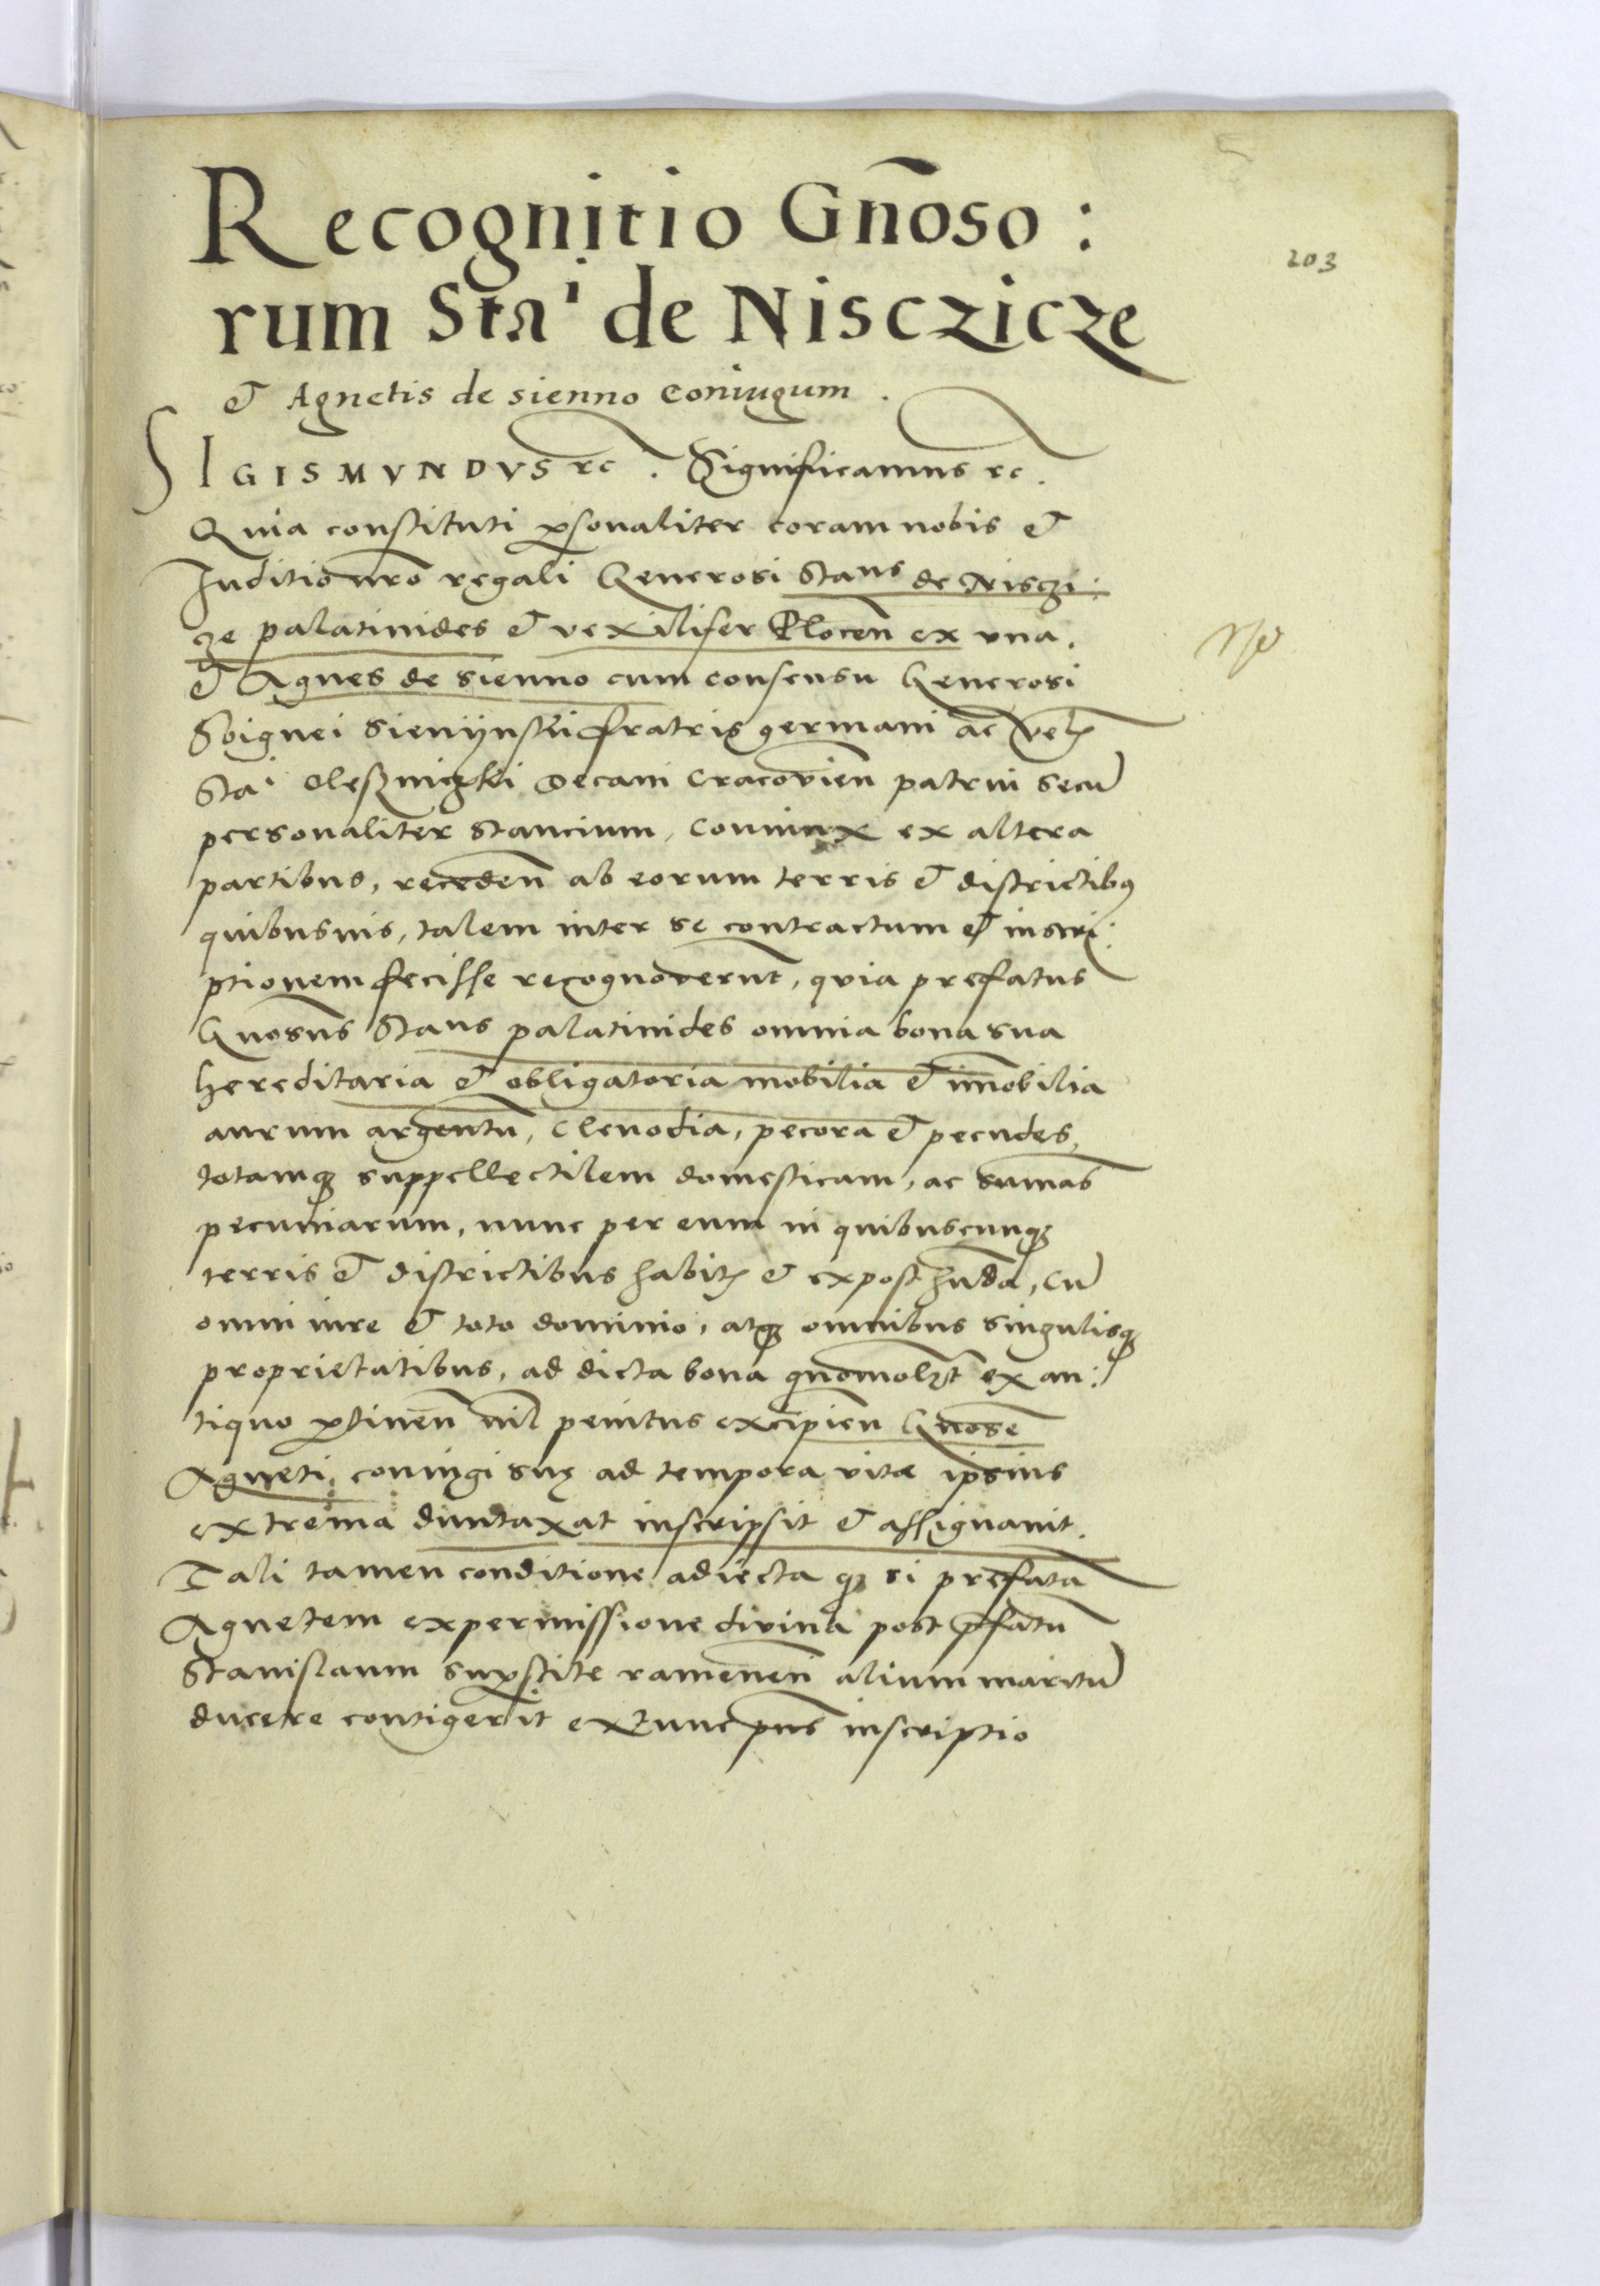 Recognitio Gn̄oso:
203
rum Staⁱ de Nisczicze
et Agnetis de sienno Coniugum.
SIGISMVNDVS rc. Significamus rc.
Quia constituti ꝑsonaliter coram nobis et
Juditio nr̄o regali Generosi Staus de Niszi:
ze palatinides et vexilifer Plocen̄ ex una.
et Agnes de sienno cum consensu Generosi
Sbignei Sienijnskij fratris germani ac
Staⁱ Oleszniczki Decani Cracovien̄ patrui secū
personaliter stancium, Coniunx ex altera
partibus, receden̄ ab eorum terris et districtibꝰ
quibusuis, talem inter se contractum et inscri:
ptionem fecisse recognoverunt, quia prefatus
Gnosus Staus palatinides omnia bona sua
hereditaria et obligatoria mobilia et im̄obilia
aurum argentū, Clenodia, pecora et pecudes,
totamqꝫ suppellectilem domesticam, ac sum̄as
pecuniarum, nunc per eum in quibuscunqꝫ
terris et districtibus habit et expost hn̄da, Cū
omni iure et toto dominio, atqꝫ omnibus singulisqꝫ
proprietatibus, ad dicta bona ex an:
tiquo ꝑtinen̄ nil penitus excipien̄ Gnose
Agneti, coniugi suę ad tempora vitæ ipsius
extrema duntaxat inscripsit et assignauit.
Tali tamen conditione adiecta qꝫ si prefatā
Agnetem ex permissione divina post p̄fatū
Stanislaum suꝑstite ramenen̄ alium maritū
ducere contigerit extunc pn̄s inscriptio